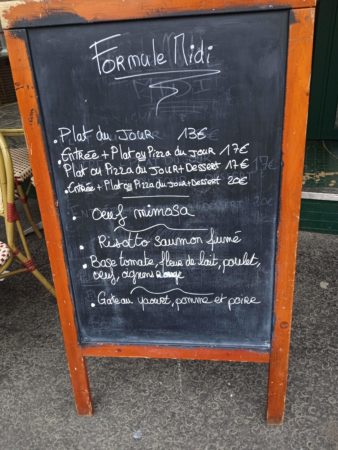 Formule Midi
. Plat du JOUR 13€
. Entrée + Plat ou Pizza du JOUR 17€
Plat ou Pizza du JOUR + Dessert 17€
. Entrée + Plat ou Pizza du Jour + Dessert 20€
. Oeuf mimosa
. Risotto saumon fumé
. Base tomate, fleur de lait, poulet,
oeuf, oignons rouge
. Gateau yaourt, pomme et poire